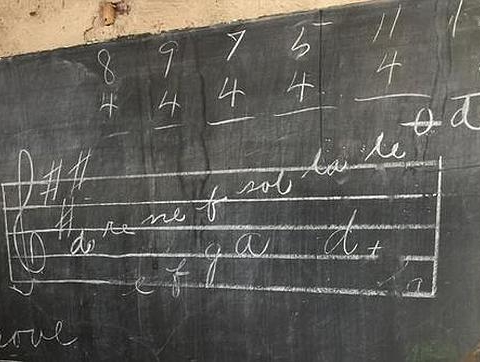 8 9 7 5 11
4 4 4 4 4
d
sol la te
do re me f
g a d +
e f